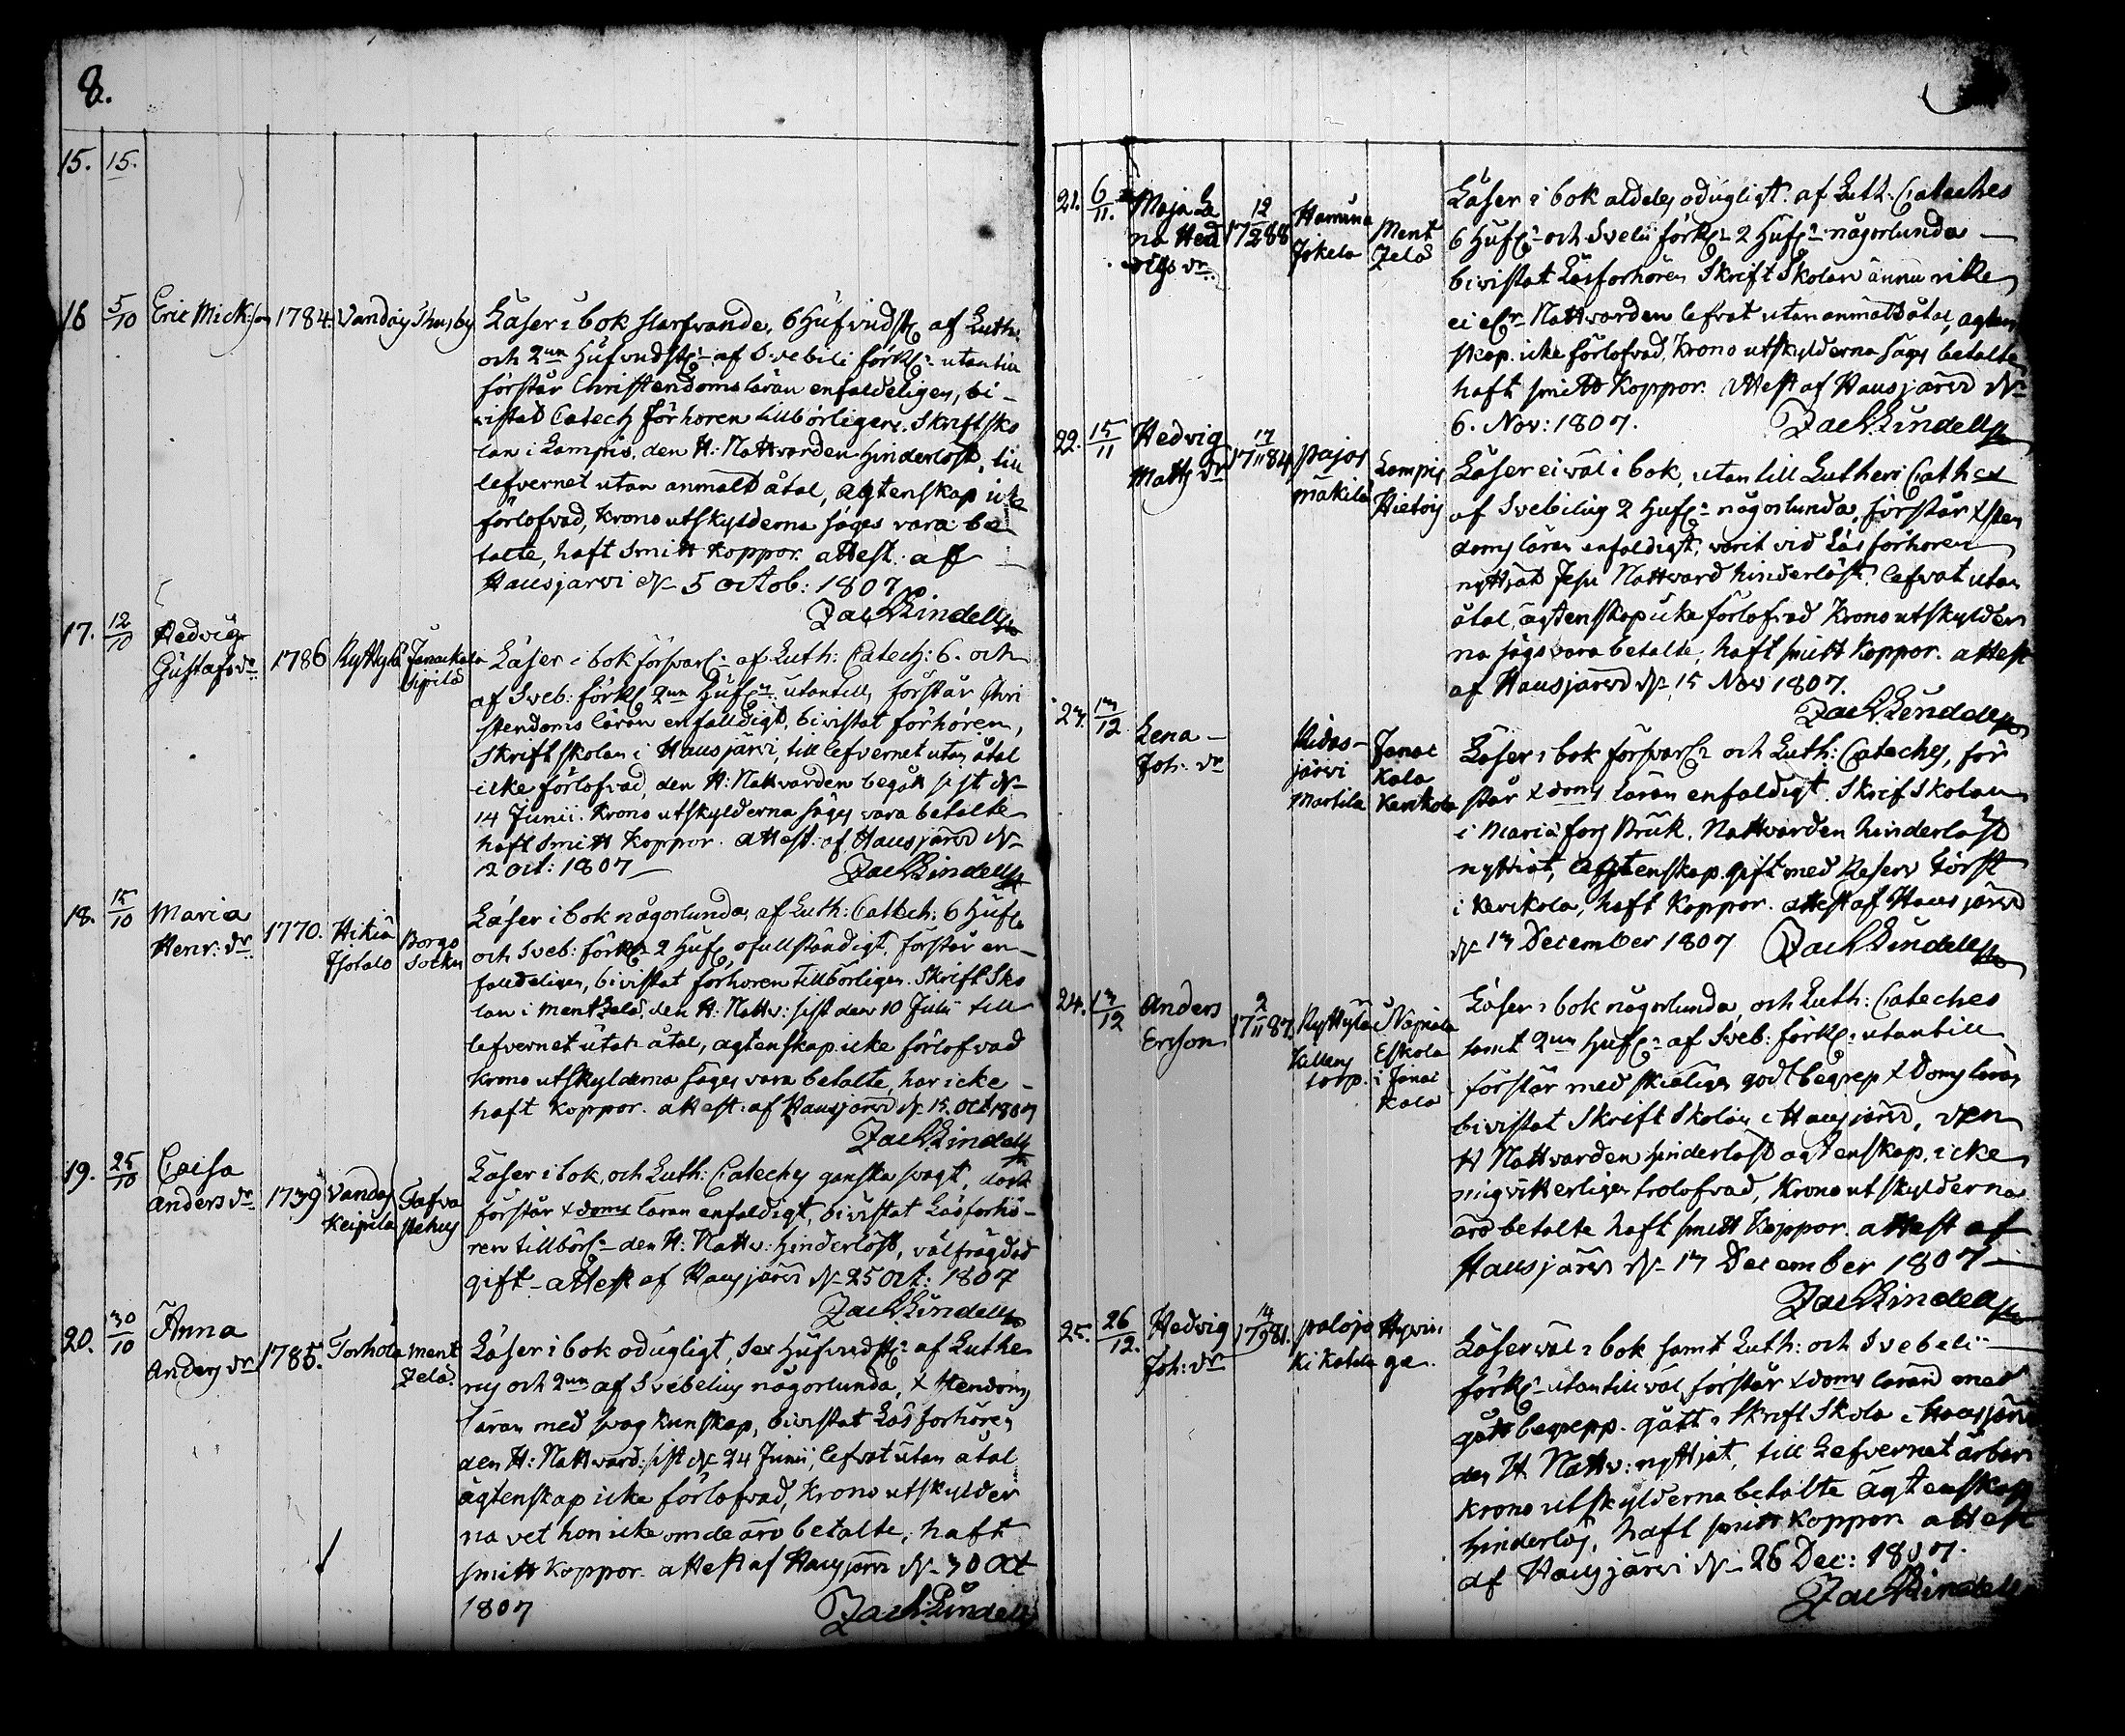 8.
15. 15.
16 5/10 Eric Mick:son 1784. Vandais Thusby
Läser i bok slarfvande, 6 Hufvudst: af Luth:
och 2un Hufvudst: af Svebili förkl: utantill
förstår Christendoms läran enfaldeligen, bi-
vistat Catech förhören tillbörligen. Skriftsko
lan i Lampis. den H: Nattvarden hinderlöst, till
lefvernet utan anmält åtal, ägtenskap icke
förlofvad, Krono utskylderna säges vara be
talte, haft Smitt koppor. attest. af
Hausjärvi d: 5 Octob: 1807
Zach Lindell
17. 12/10 Hedvig
Gustafs dr 1786 Ryttylä Janackala
Sipilä
Läser i bok försvarl: af Luth: Catech: 6. och
af Sveb: förkl 2un Hufst: utantill, förstår Chri
stendoms läran enfalldigt, bivistat förhören,
Skriftskolan i Hausjärvi, till lefvernet utan åtal
icke förlofvad, den H: Nattvarden begått sist d:
14 Junii. Krono utskylderna säges vara betalte
haft Smitt Koppor. attest. af Hausjärvi d:
12 Oct: 1807
Zach Lindell
18. 15/10 Maria
Henr: dr 1770. Hikiä
Isotalo Borgo
Sockn
Läser i bok någorlunda, af Luth: Cattech: 6 Hufs
och Sveb: förkl 2 Huf, ofullständigt, förstår en-
falldeligen, bivistat förhören tillbörligen. Skrift Sko
lan i Mentzelä, den H: Nattv: sist den 10 Julii till
lefvernet utan åtal, ägtenskap icke förlofvad
Krono utskylderna säges vara betalte, har icke
haft koppor. attest: af Hausjärvi d: 15. Oct 1807
Zach Lindell
19. 25/10 Caisa
Anders dr 1739 Vandais
Keipilä Tafva
stehus
Läser i bok, och Luth: Cateches ganska svagt, dock
förstår xdoms läran enfaldigt, bivistat Läsförhö-
ren tillbörl: den H: Nattv: hinderlöst, välfrägdad
gift - attest af Hausjärvi d: 25 Oct: 1807
Zach Lindell
20. 30/10 Anna
Anders dr 1785. Torhola Ment
zelä.
Läser i bok odugligt, Sex Hufvudst: af Luthe
rus och 2un af Svebelius någorlunda, xstendoms
läran med svag kunskap, bivistat Läsförhören
den H: Nattvard: sist d: 24 Junii, lefvat utan åtal
ägtenskap icke förlofvad, Krono utskylder
na vet hon icke om de äro betalte, haft
smitt Koppor. attest af Hausjärvi d: 30 Oct
1807
Zach Lindell
21. 6/11. Maja Le
na Hed
vigs dr 12/2 1788 Hamina
Jokela Ment
zelä
Läser i bok alldeles odugligt. af Luth: Cateches
6 Hufst: och Svelii förkl: 2 Hufst: någorlunda
bivistat Läsförhören Skrift Skolan ännu icke
ei elr Nattvarden lefvat utan anmält åtal, ägten
skap. icke förlofvad, Krono utskylderna säges betalte
haft smitt Koppor. Attest af Hausjärvi d:
6. Nov: 1807.
Zach Lindell
22. 15/11 Hedvig
Matts dr 17/11 1784 Pajos
mäkilä Lampis
Hietois
Läser ei väl i bok, utantill Lutheri Catheches
af Svebilius 2 Hufst: någorlunda, förstår xsten
doms läran enfaldigt, varit vid Läsförhören
nyttjat Jesu Nattvard hinderlöst, lefvat utan
åtal, ägtenskap icke förlofvad Krono utskylder
na sägs vara betalte, haft smitt koppor. attest
af Hausjärvi d: 15 Nov 1807.
Zach Lindell
23. 13/12 Lena
Joh: dr Ridas-
järvi
Martila Janac
kala
Kerikola
Läser i bok försvarl: och Luth: Cateches, för
står xdoms läran enfaldigt. Skrif Skolan
i Mariæfors Bruk. Nattvarden hinderlöst
nyttiat, ägtenskap gift med Reserv Först
i Kerikola, haft koppor. attest af Hausjärvi
d: 13 December 1807 Zach Lindell
24. 13/12 Anders
Ericson 2/11 1787. Ryttylä
torp. Napiala
Eskola
i Janac
kala
Läser i bok någorlunda, och Luth: Cateches
samt 2un Hufst: af Sveb: förkl: utantill
förstår med skiäligen godt begrep xdoms läran
bivistat Skrift Skolan i Hausjärvi, den
H Nattvarden hinderlöst ägtenskap. icke
mig vitterligen trolofvad, Krono utskylderna
äro betalte haft smitt Koppor. attest af
Hausjärvi d: 13 December 1807
Zach Lindell
25. 26/12. Hedvig
Joh: dr 14/9 1781. Palojo
ki Hyvin
ge.
Läser väl i bok samt Luth: och Svebeli
förkl: utantill väl förstår xdoms läran med
gått begrepp. gått i Skrift Skola i Hausjärvi
den H. Nattv: nyttjat, till Lefvernet ärbar
Krono utskylderna betalte ägtenskap
hinderlös, haft smitt koppor attest
af Hausjärvi d: 26 Dec: 1807.
Zach Lindell